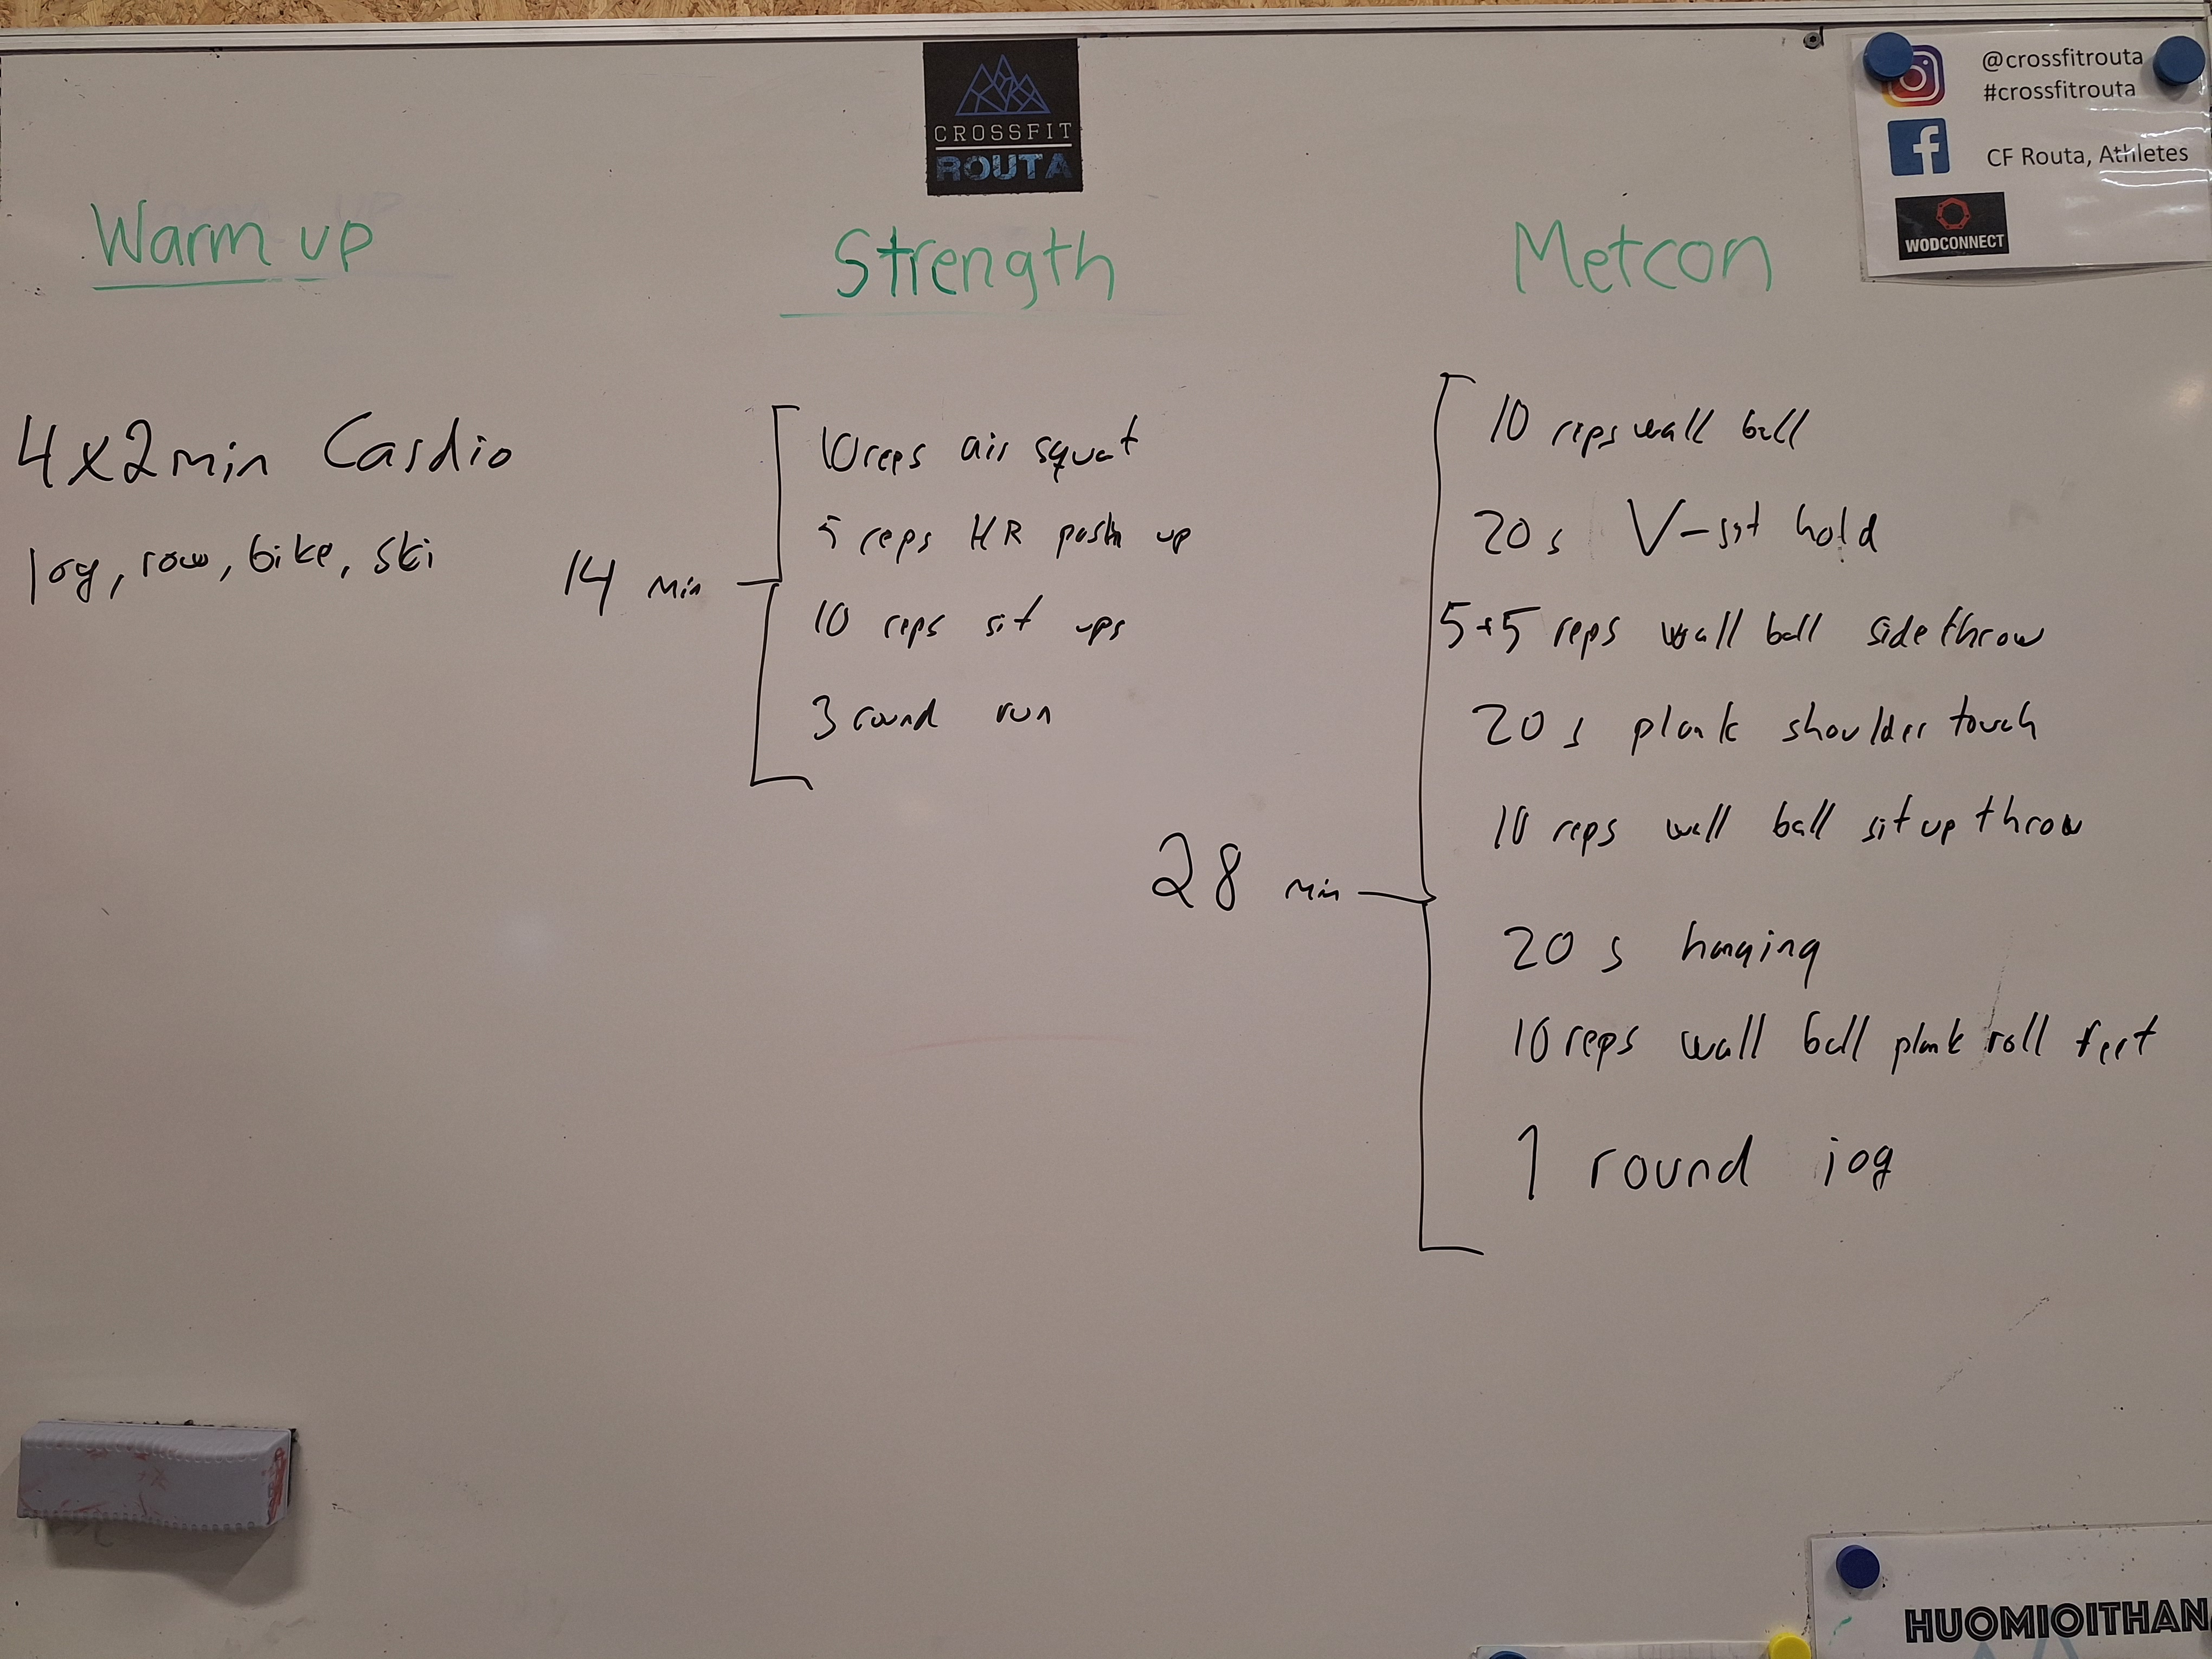 CROSSFIT
ROUTA
@crossfitrouta
#crossfitrouta
CF Routa, Athletes
WODCONNECT
Warm up
4x2min Cardio
jog, row, bike, ski
Strength
14 min
10 reps air squat
5 reps HR push up
10 reps sit ups
3 round run
Metcon
28 min
10 reps wall ball
20 s V-sit hold
5+5 reps wall ball side throw
20 s plank shoulder touch
10 reps wall ball sit up throw
20 s hanging
10 reps wall ball plank roll feet
1 round jog
HUOMIOITHAN